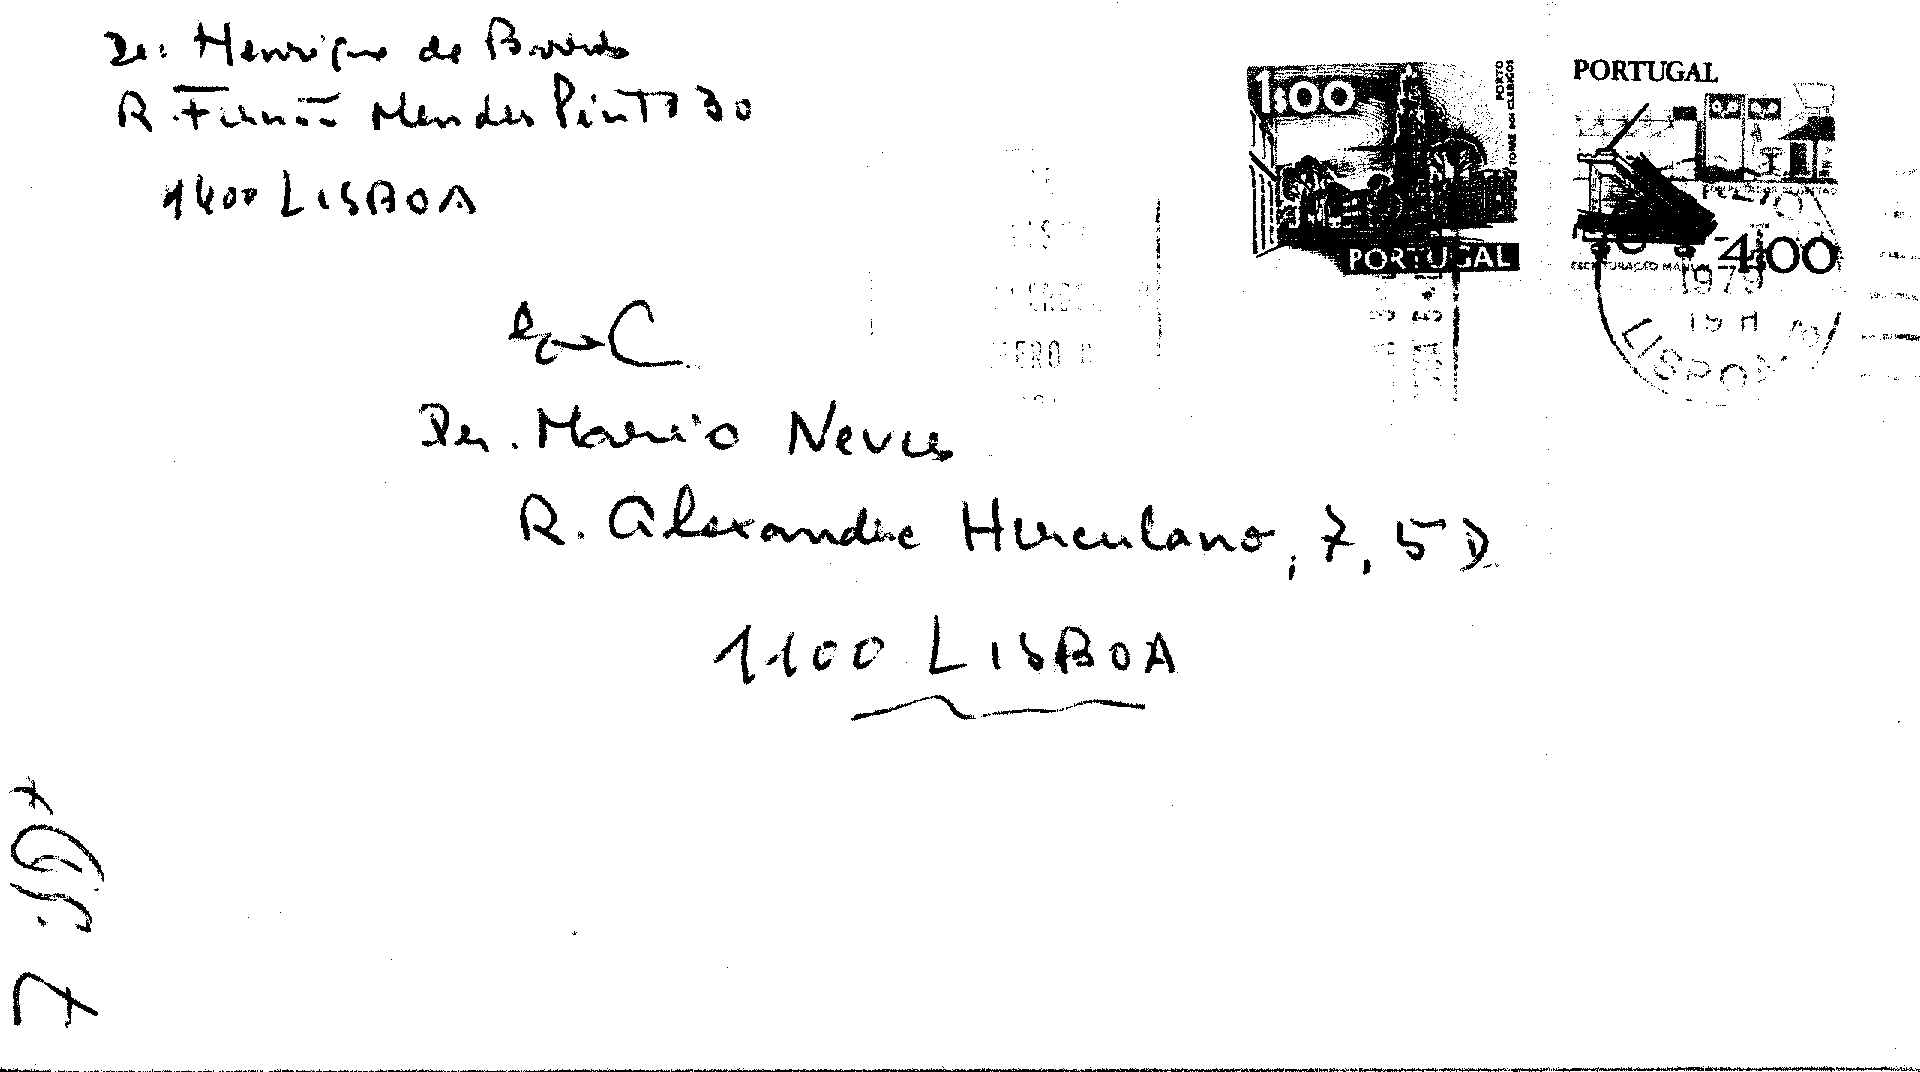 De: Henrique de Barros
R. Fernão Mendes Pinto 30
1400 LISBOA
1$00
PORTO
TORRE DOS CLÉRIGOS
PORTUGAL
PORTUGAL
ESCRITURAÇÃO MANUAL
4$00
1979
19 H
LISBOA
Dr. Mario Neves
R. Alexandre Herculano, 7, 5 D
1100 LISBOA